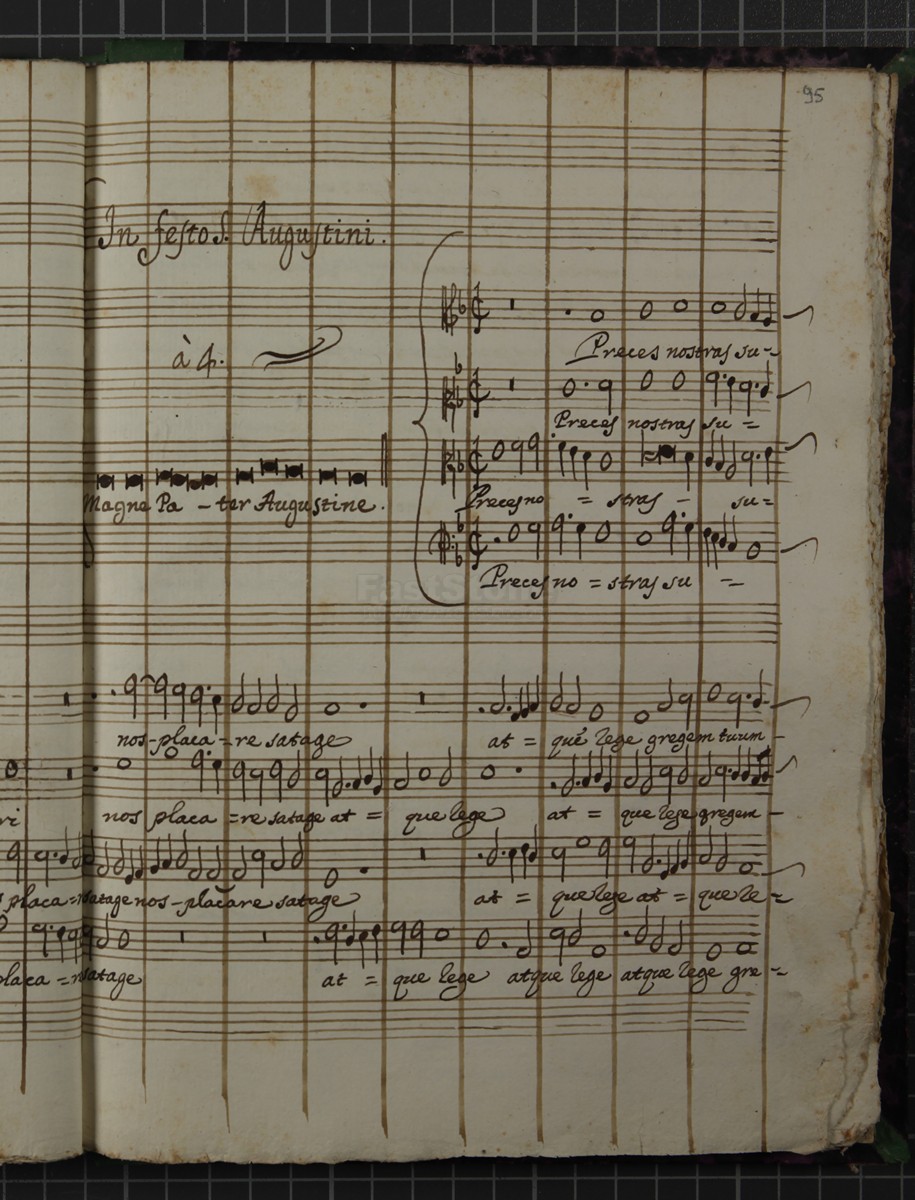 95
In festo S. Augustini.
à 4.
Preces nostras su=
Preces nostras su =
Magne Pa - ter Augustine.
Preces no = stras - su=
Preces no = stras su =
nos-placa=re satage
at = que lege gregem tuum -
ri
nos placa =re satage at = que lege
at = que lege gregem -
placa= satage nos-placare satage
at = que lege at = que le=
placa = satage
at = que lege atque lege atque lege gre=